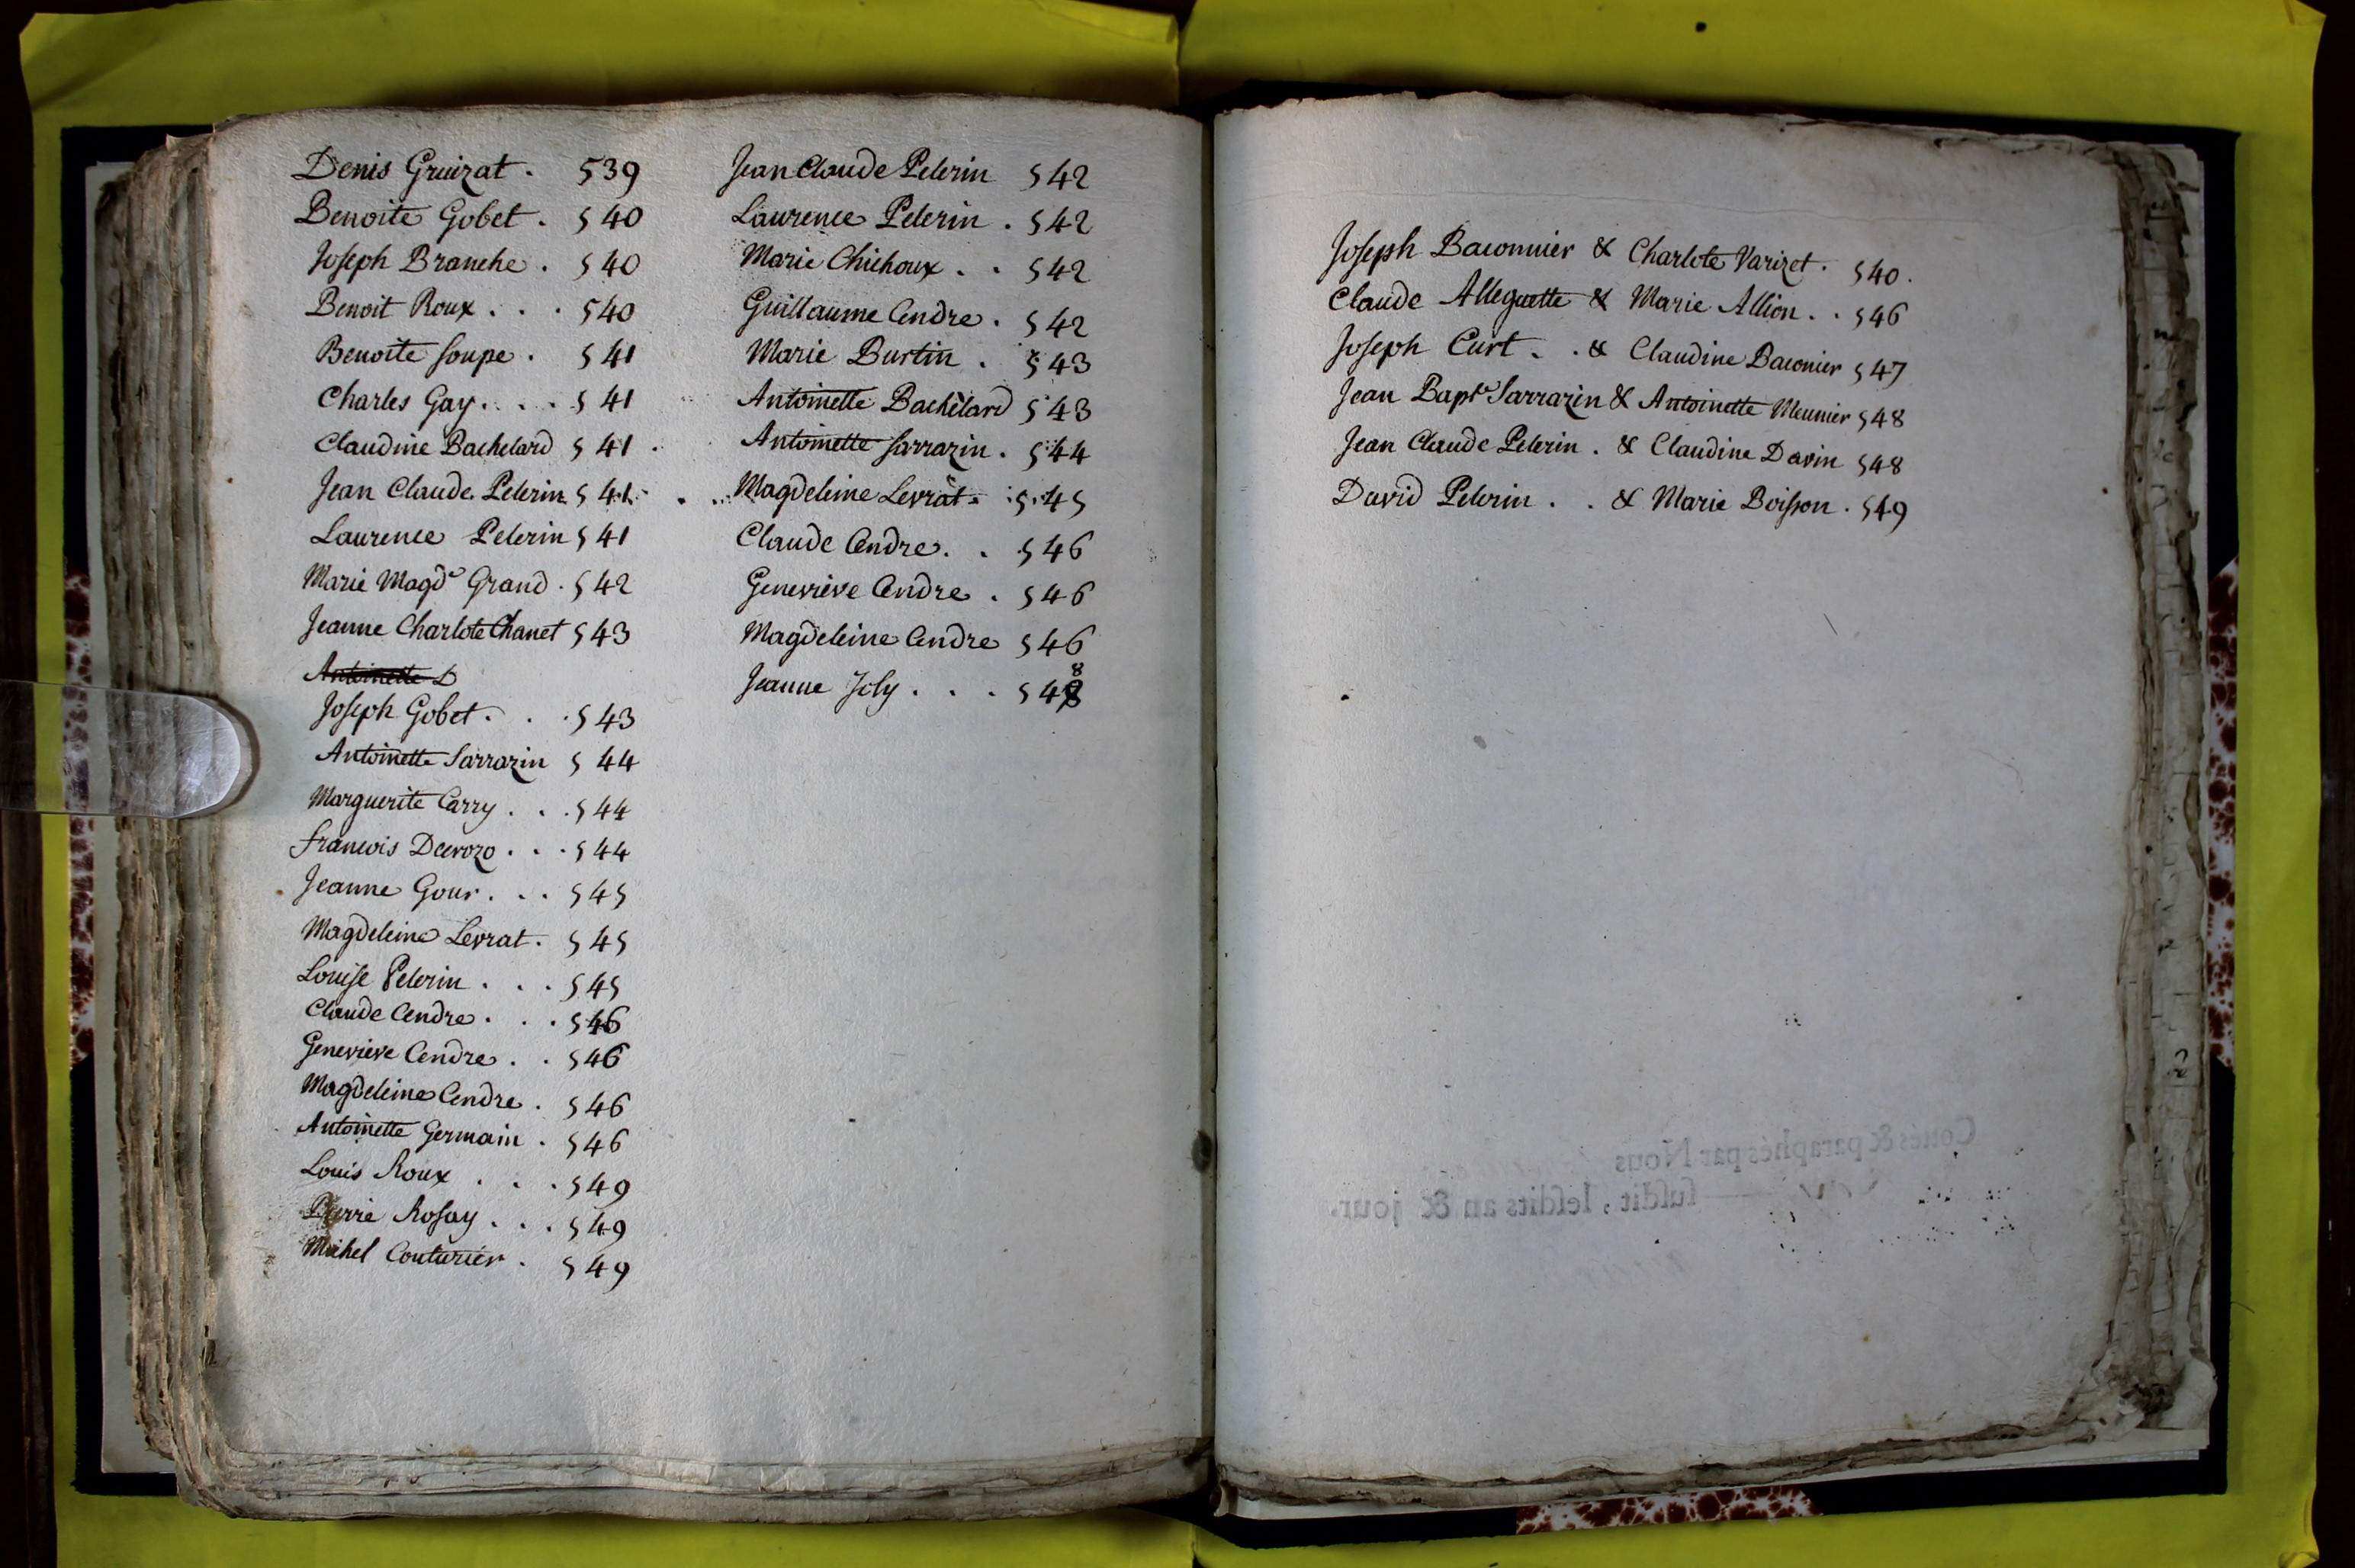 Denis Gruizat . 539
Benoite Gobet . 540
Joseph Branche . 540
Benoit Roux . . . 540
Benoite Soupe . 541
Charles Gay . . . 541
Claudine Bachelard 541 .
Jean Claude Pelerin 541
Laurence Pelerin 541
Marie Magde Grand . 542
Jeanne Charlote Chanet 543
Antoinette D
Joseph Gobet . . . 543
Antoinette Sarrazin 544
Marguerite Carry . . . 544
Francois 544
Jeanne Gour . . . 545
Magdeleine Levrat . 545
Louise Pelerin . . . 545
Claude Cendre . . . 546
Genevieve Cendre . . 546
Magdeleine Cendre . 546
Antoinette Germain . 546
Louis Roux . . . 549
Pierre Rosay . . . 549
Michel Couturier . 549
Jean Claude Pelerin 542
Laurence Pelerin . 542
Marie Chichoux . . 542
Guillaume Cendre . 542
Marie Burtin . 543
Antoinette Bachelard 543
Antoinette Sarrazin . 544
Magdeleine Levrat . 545
Claude Cendre . . 546
Genevieve Cendre . 546
Magdeleine Cendre 546
Jeanne Joly . . . 548
Joseph Baconnier & Charlote Varizet . 540 .
Claude Alleguette & Marie Allion . . 546
Joseph Curt . . & Claudine Baconier 547
Jean Bapte Sarrazin & Antoinette Meunier 548
Jean Claude Pelerin . & Claudine Davin 548
David Pelerin . . & Marie Boisson . 549
Cotés & paraphés par Nous
susdit, lesdits an & jour.